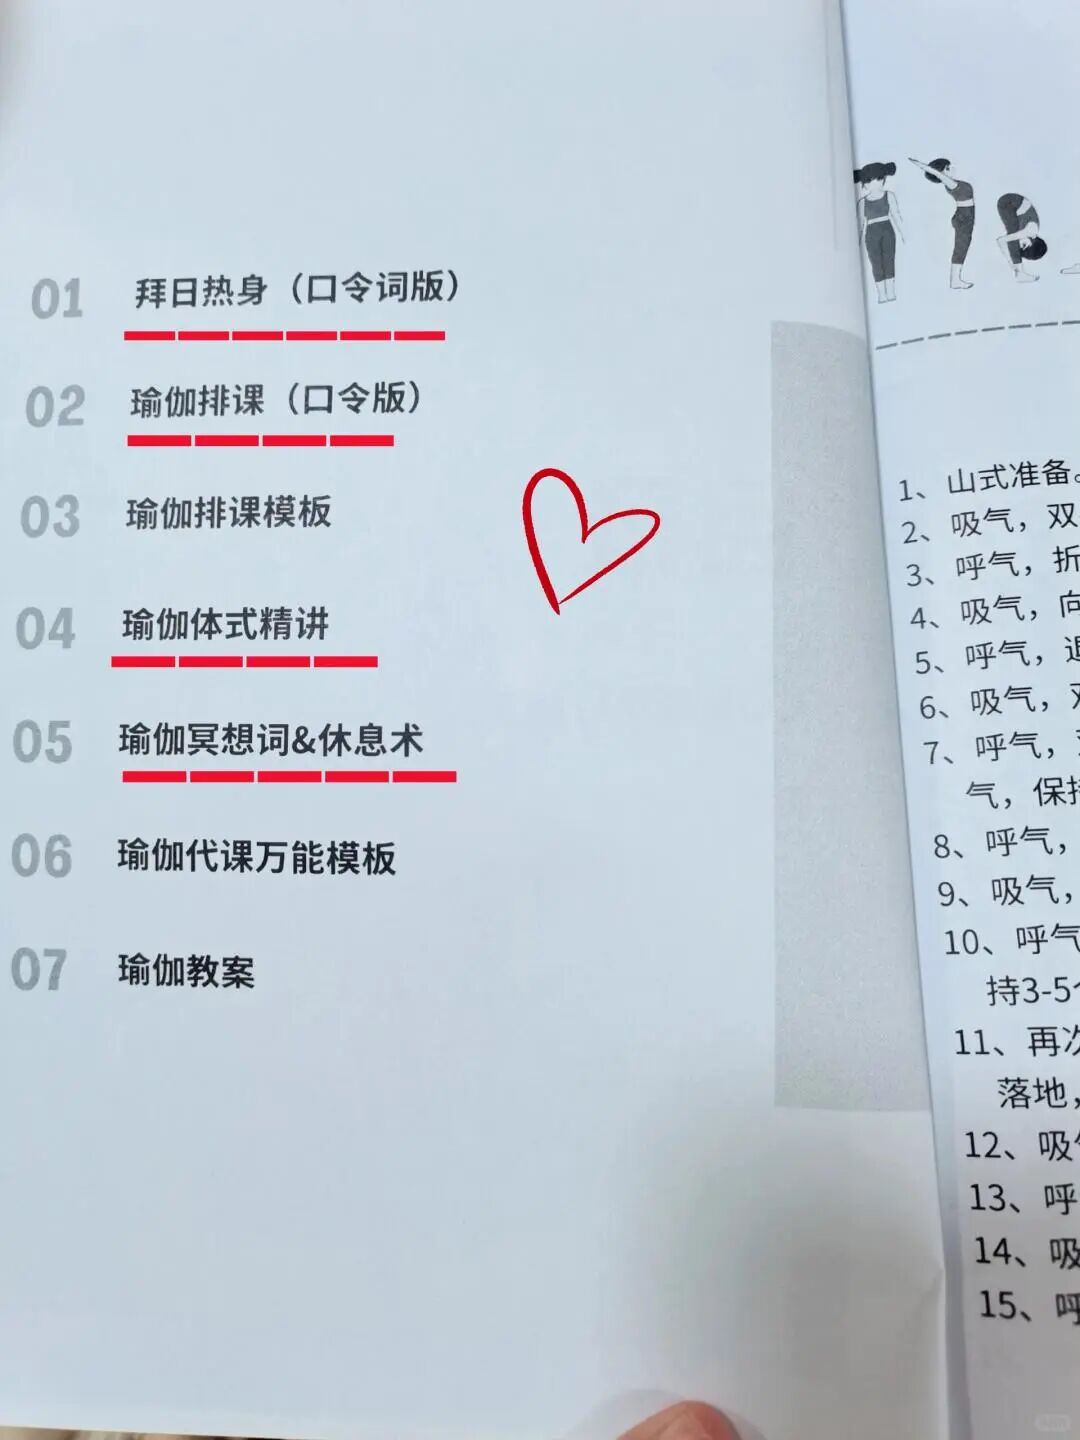 01 拜日热身（口令词版）
02 瑜伽排课（口令版）
03 瑜伽排课模板
04 瑜伽体式精讲
05 瑜伽冥想词&休息术
06 瑜伽代课万能模板
07 瑜伽教案
1、山式准备。
2、吸气，双
3、呼气，折
4、吸气，向
5、呼气，退
6、吸气，
7、呼气，
气，保持
8、呼气，
9、吸气，
10、呼气
持3-5个
11、再次
落地，
12、吸气
13、呼
14、吸
15、呼